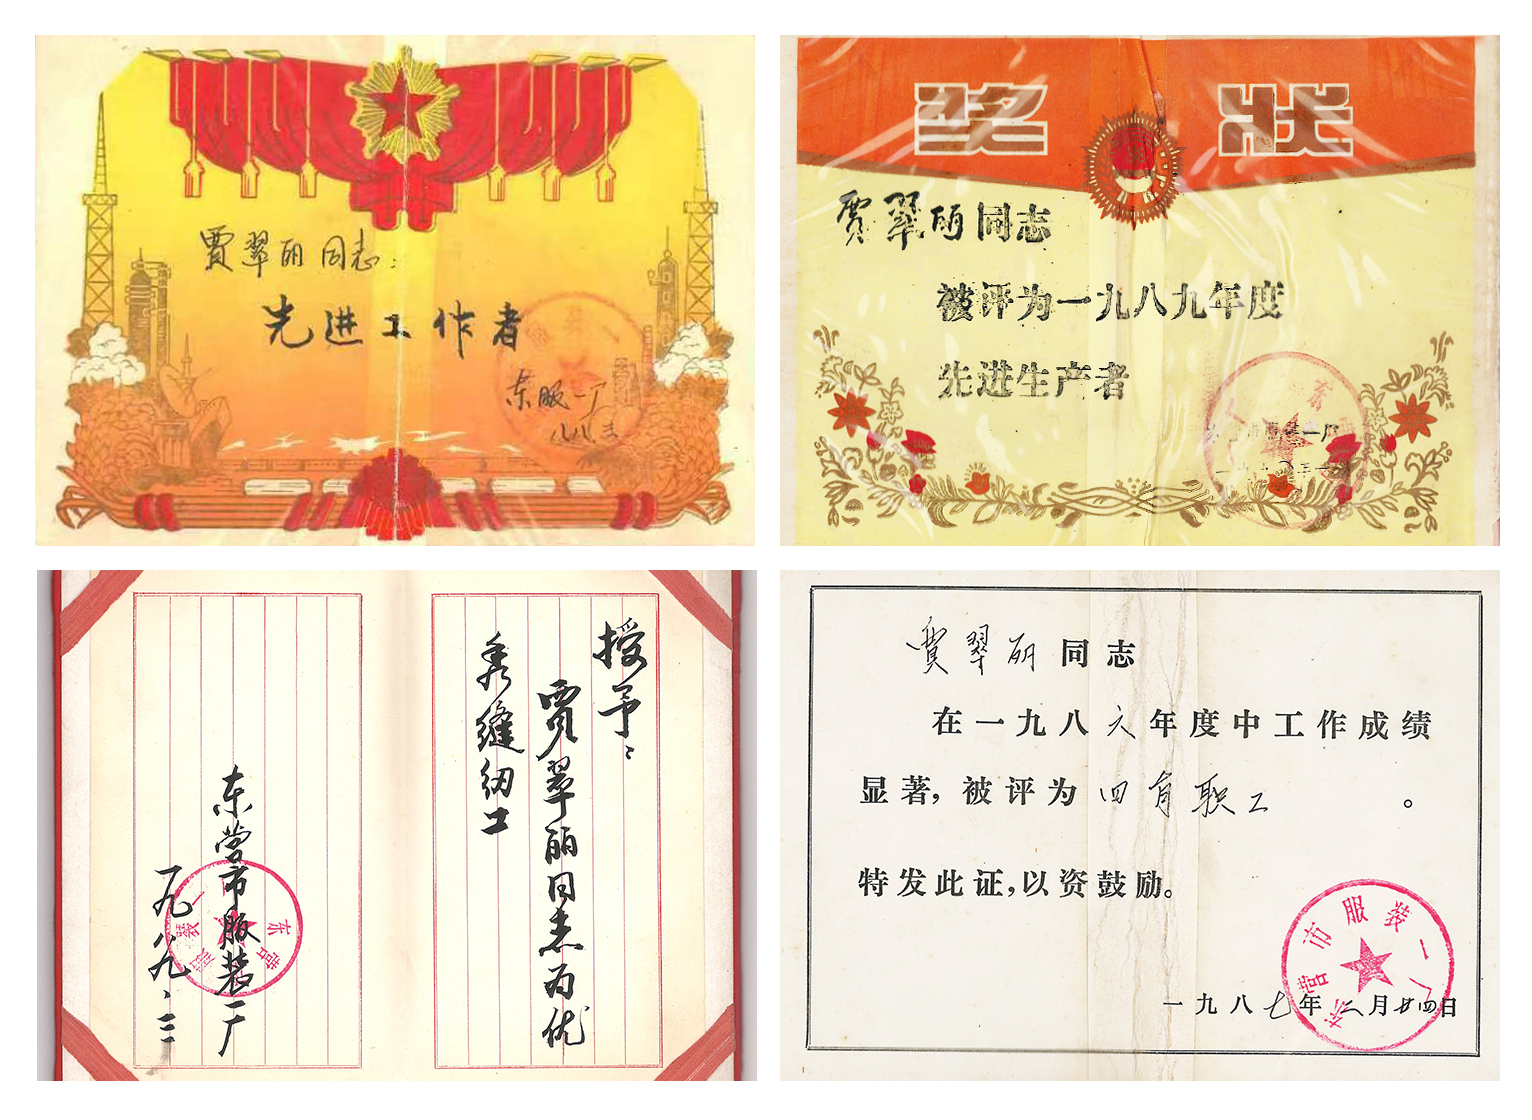 贾翠丽同志:
先进工作者
东服一厂
八八.三
奖状
贾翠丽同志
被评为一九八九年度
先进生产者
授予:
贾翠丽同志为优
秀缝纫工
东营市服装一厂
一九八九.三
贾翠丽同志
在一九八六年度中工作成绩
显著,被评为四有职工。
特发此证,以资鼓励。
东营市服装一厂
一九八七年二月廿四日